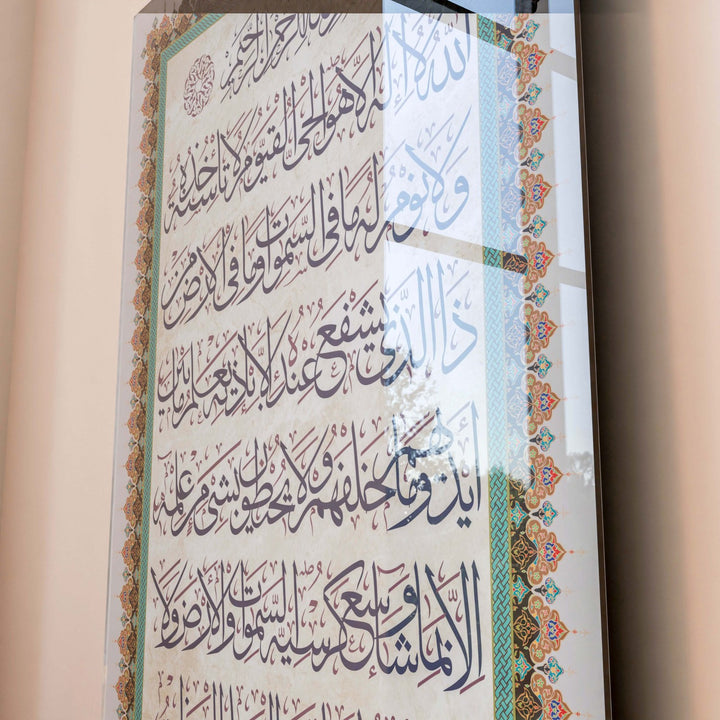 بسم الله الرحمن الرحيم
الله لا إله إلا هو الحي القيوم لا تأخذه سنة
ولا نوم له ما في السموات وما في الأرض من
ذا الذي يشفع عنده إلا بإذنه يعلم ما بين
أيديهم وما خلفهم ولا يحيطون بشيء من علمه
إلا بما شاء وسع كرسيه السموات والأرض ولا